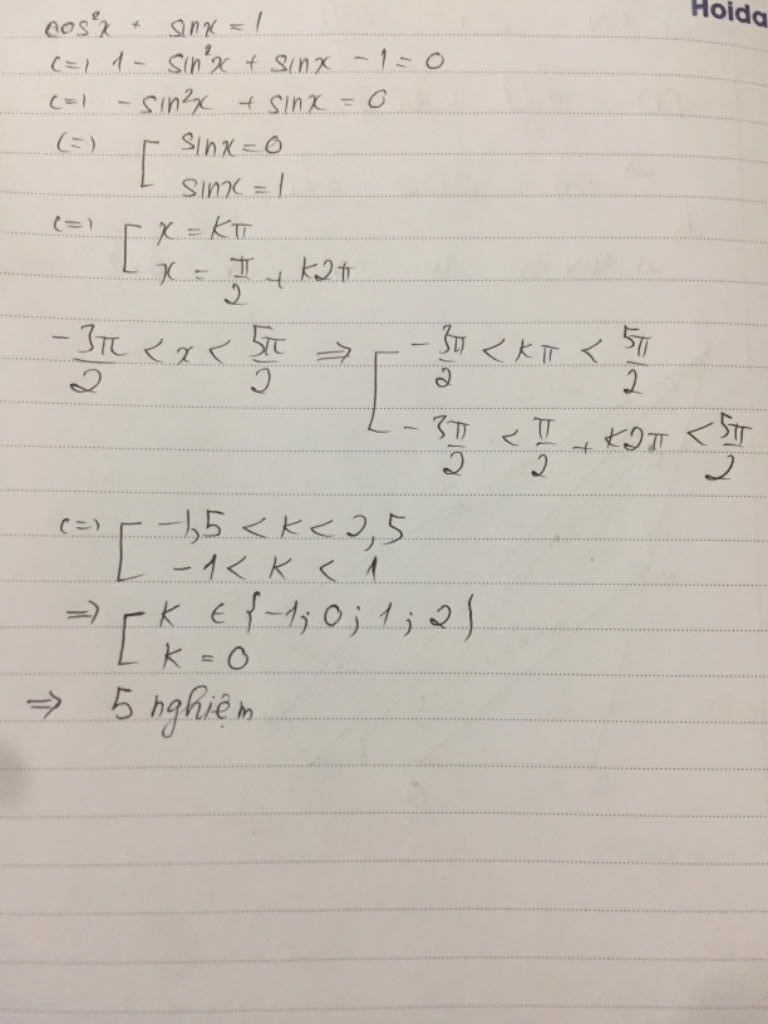 Hoida
cos²x + sinx = 1
(=) 1 - sin²x + sinx - 1 = 0
(=) - sin²x + sinx = 0
(=) [ sinx = 0
sinx = 1
(=) [ x = kπ
x = π/2 + k2π
-3π/2 < x < 5π/2 => [ -3π/2 < kπ < 5π/2
-3π/2 < π/2 + k2π < 5π/2
(=) [ -1,5 < k < 2,5
-1 < k < 1
=> [ k ∈ {-1; 0; 1; 2}
k = 0
=> 5 nghiệm